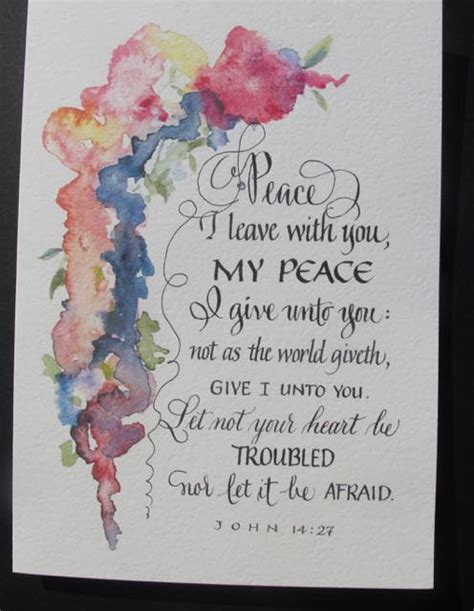 Peace
I leave with you,
MY PEACE
I give unto you:
not as the world giveth,
GIVE I UNTO YOU.
Let not your heart be
TROUBLED
nor let it be AFRAID.
JOHN 14:27